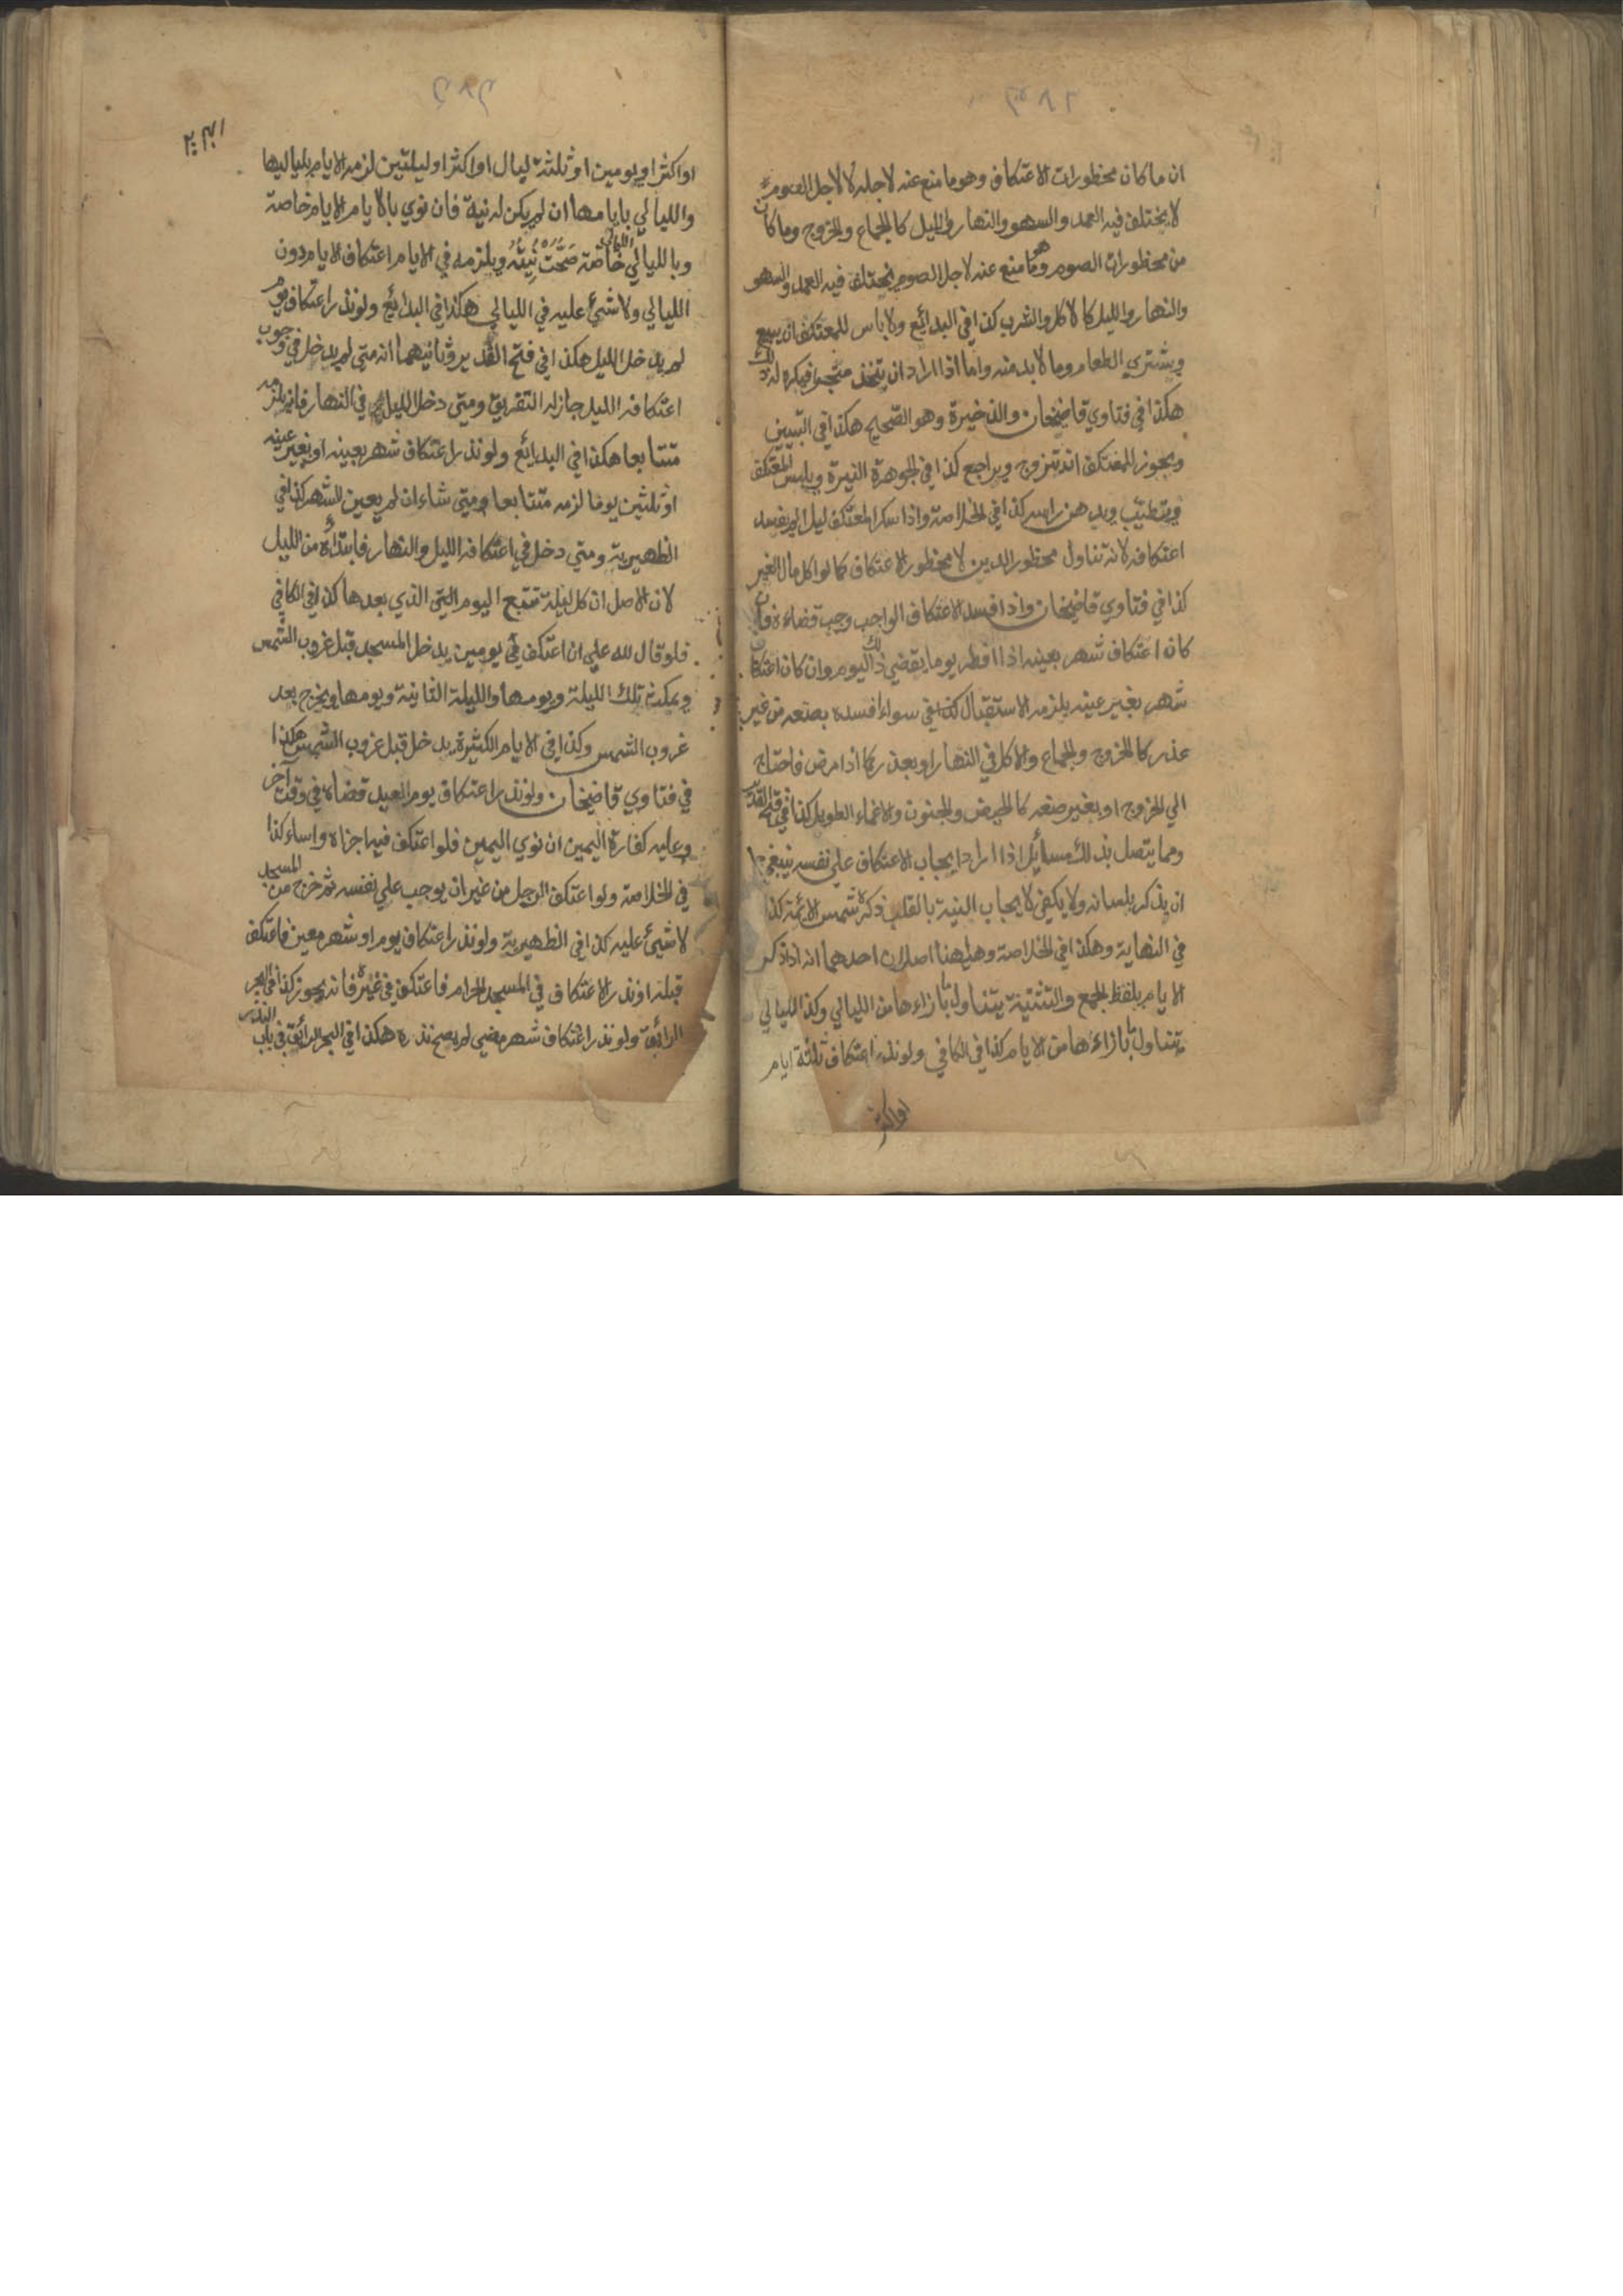 ان ما كان محظورات الاعتكاف وهو ما منع عنه لاجله لا لاجل الصوم
لا يختلف فيه العمد والسهو والنهار والليل كالجماع والخروج وما كان
من محظورات الصوم وهو ما منع عنه لاجل الصوم يختلف فيه العمد والسهو
والنهار والليل كالاكل والشرب كذا في البدائع ولا باس للمعتكف ان يبيع
ويشتري الطعام وما لا بد منه واما اذا اراد ان يتخذ متجرا فيكره له ذلك
هكذا في فتاوي قاضيخان والذخيرة وهو الصحيح هكذا في التبيين
ويجوز للمعتكف ان يتزوج ويراجع كذا في الجوهرة النيرة ويلبس المعتكف
ويتطيب ويدهن راسه كذا في الخلاصة واذا سكر المعتكف ليلا لم يفسد
اعتكافه لانه تناول محظور الدين لا محظور الاعتكاف كما لو اكل مال الغير
كذا في فتاوي قاضيخان واذا فسد الاعتكاف الواجب وجب قضاءه فان
كان اعتكاف شهر بعينه اذا افطر يوما يقضي ذلك اليوم وان كان اعتكاف
شهر بغير عينه يلزمه الاستقبال سواء افسده بصنعه من غير
عذر كالخروج والجماع والاكل في النهار او بعذر كما اذا مرض فاحتاج
الي الخروج او بغير صنعه كالحيض والجنون والاغماء الطويل كذا في فتح القدير
ومما يتصل بذلك مسائل اذا اراد ايجاب الاعتكاف علي نفسه ينبغي
ان يذكر بلسانه ولا يكفي لايجاب النية بالقلب ذكره شمس الائمة كذا
في النهاية وهكذا في الخلاصة وههنا اصلان احدهما انه اذا ذكر
الايام بلفظ الجمع والتثنية يتناول بازاءها من الليالي وكذا الليالي
يتناول بازاءها من الايام كذا في الكافي ولو نذر اعتكاف ثلثة ايام
او اكثر
او اكثر او يومين او ثلثة ليال او اكثر او ليلتين لزمه الايام بلياليها
والليالي بايامها ان لم يكن له نية فان نوي بالايام الايام خاصة
وبالليالي الليالي خاصة صَحَّتْ نِيَّتُه ويلزمه في الايام اعتكاف الايام دون
الليالي ولا شيئ عليه في الليالي هكذا في البدائع ولو نذر اعتكاف يوم
لم يدخل الليل هكذا في فتح القدير وثانيهما انه متي لم يدخل في وجوب
اعتكافه الليل جاز له التفريق ومتي دخل الليل في النهار فانه يلزمه
متتابعا هكذا في البدائع ولو نذر اعتكاف شهر بعينه او بغير عينه
او ثلثين يوما لزمه متتابعا ومتي شاء ان لم يعين الشهر كذا في
الظهيرية ومتي دخل في اعتكافه الليل والنهار فابتداؤه من الليل
لان الاصل ان كل ليلة تتبع اليوم التي الذي بعدها كذا في الكافي
فلو قال لله علي ان اعتكف في يومين يدخل المسجد قبل غروب الشمس
ويمكث تلك الليلة ويومها والليلة الثانية ويومها ويخرج بعد
غروب الشمس وكذا في الايام الكثيرة يدخل قبل غروب الشمس هكذا
في فتاوي قاضيخان ولو نذر اعتكاف يوم العيد قضاه في وقت آخر
وعليه كفارة اليمين ان نوي اليمين فلو اعتكف فيه اجزاه واساء كذا
في الخلاصة ولو اعتكف الرجل من غير ان يوجب علي نفسه ثم خرج من المسجد
لا شيئ عليه كذا في الظهيرية ولو نذر اعتكاف يوم او شهر معين فاعتكف
قبله او نذر الاعتكاف في المسجد الحرام فاعتكف في غيره فانه يجوز كذا في البحر
الرائق ولو نذر اعتكاف شهر مضي لم يصح نذره هكذا في البحر الرائق في باب النذر